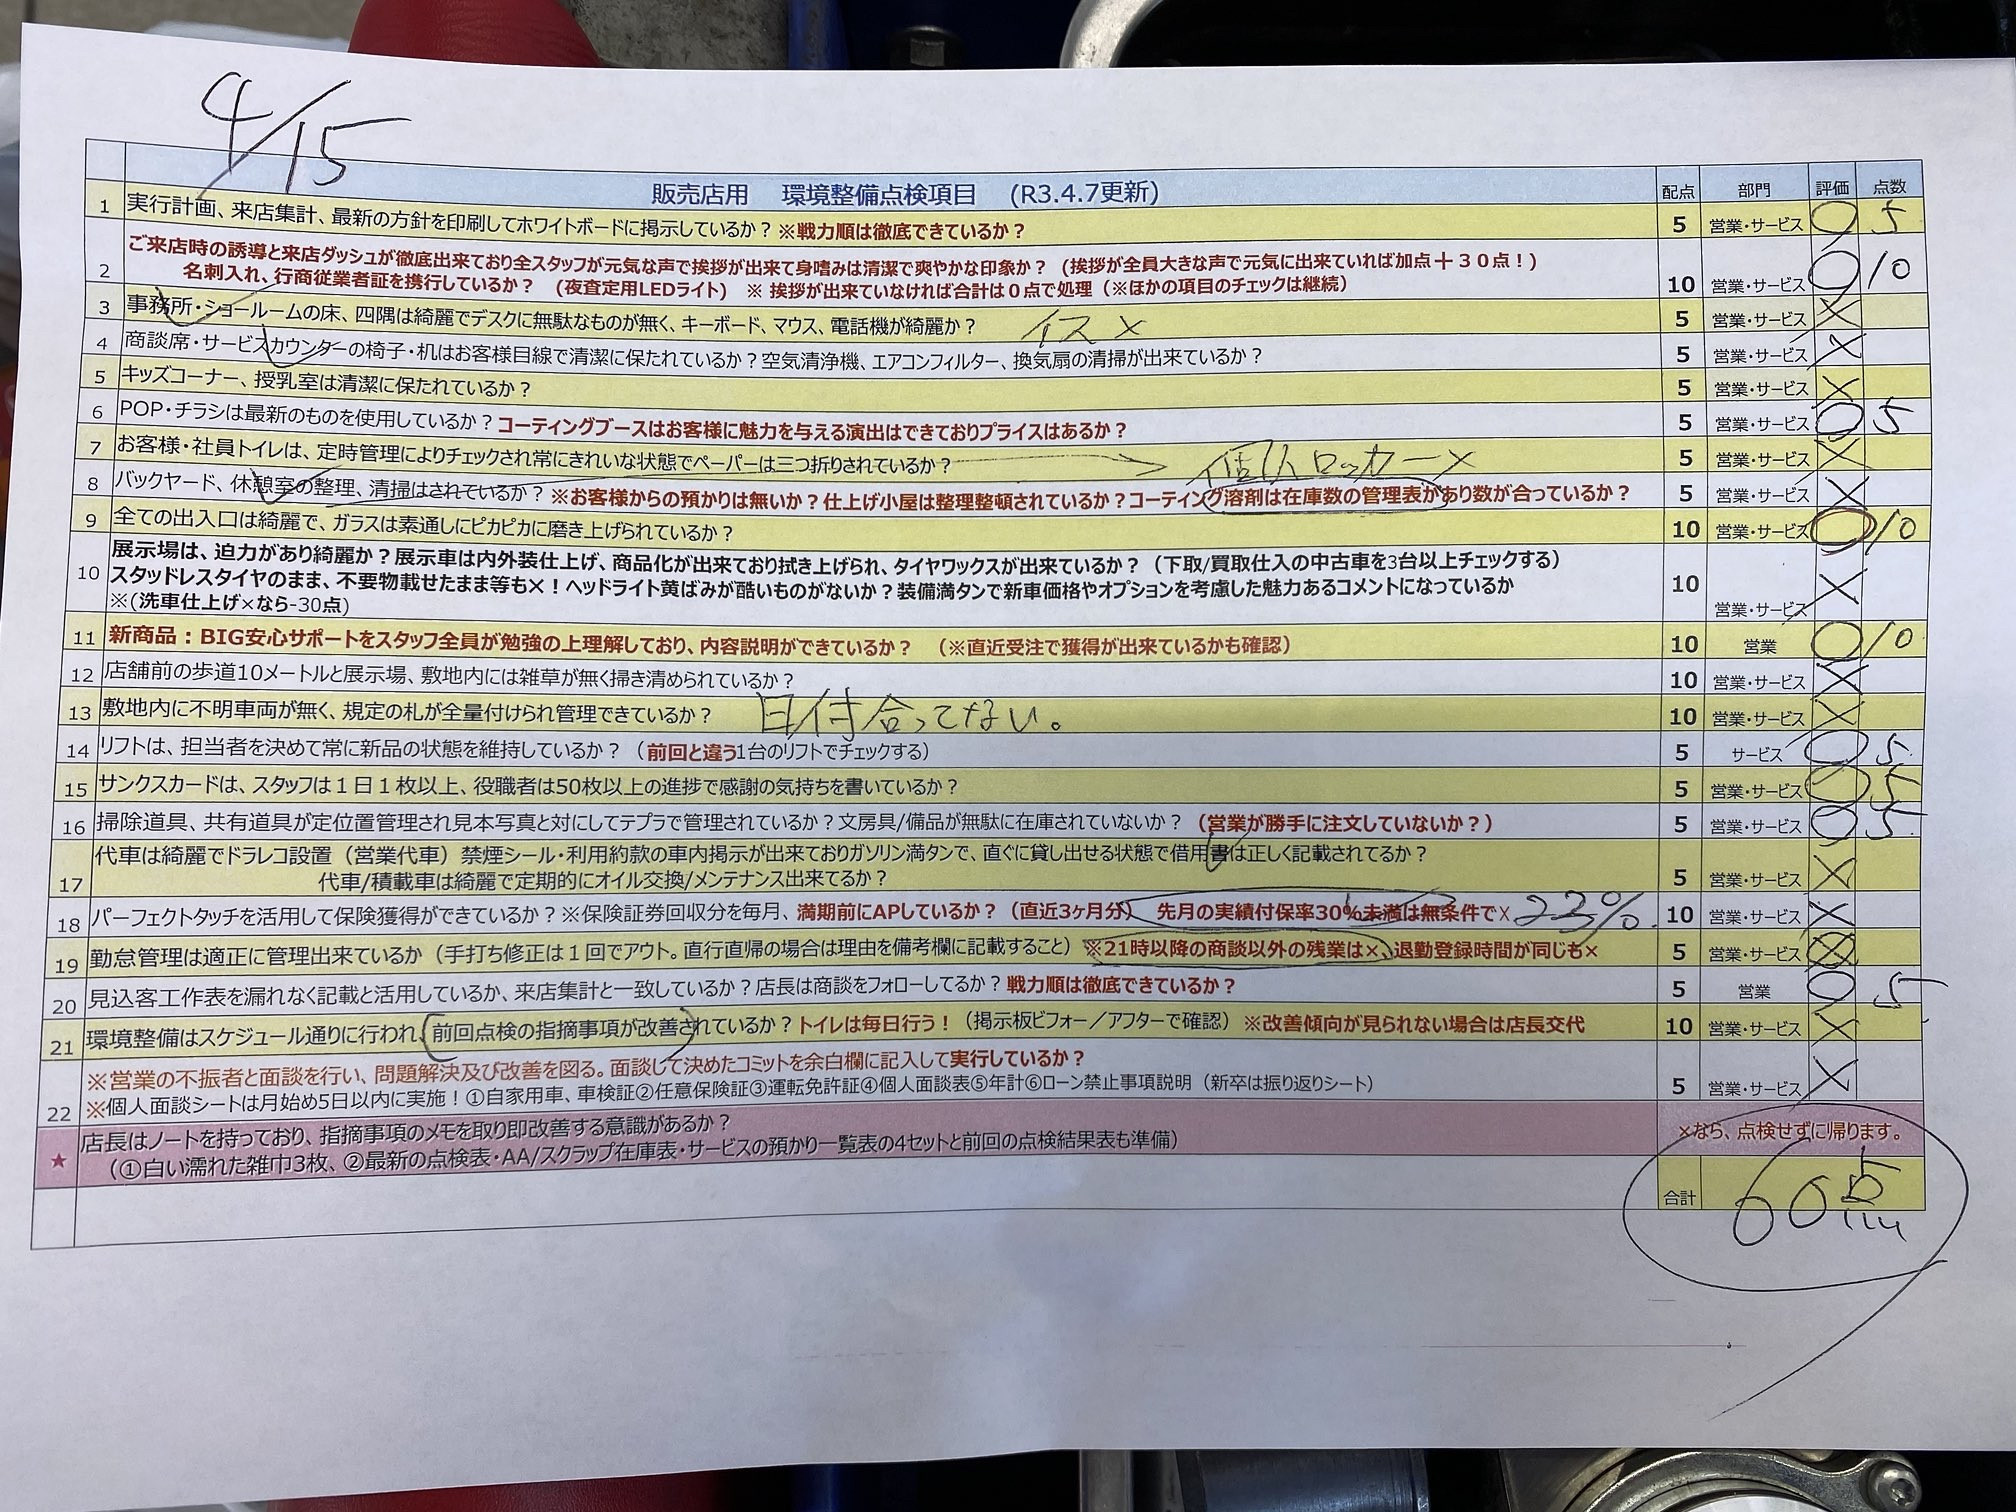 4/15
販売店用 環境整備点検項目 (R3.4.7更新) 配点 部門 評価 点数
1 実行計画、来店集計、最新の方針を印刷してホワイトボードに掲示しているか?※戦力順は徹底できているか? 5 営業・サービス ○ 5
2 ご来店時の誘導と来店ダッシュが徹底出来ており全スタッフが元気な声で挨拶が出来て身嗜みは清潔で爽やかな印象か?(挨拶が全員大きな声で元気に出来ていれば加点+30点!)
名刺入れ、行商従業者証を携行しているか? (夜査定用LEDライト) ※ 挨拶が出来ていなければ合計は0点で処理(※ほかの項目のチェックは継続) 10 営業・サービス ○ 10
3 事務所・ショールームの床、四隅は綺麗でデスクに無駄なものが無く、キーボード、マウス、電話機が綺麗か? イス× 5 営業・サービス ×
4 商談席・サービスカウンターの椅子・机はお客様目線で清潔に保たれているか?空気清浄機、エアコンフィルター、換気扇の清掃が出来ているか? 5 営業・サービス ×
5 キッズコーナー、授乳室は清潔に保たれているか? 5 営業・サービス ×
6 POP・チラシは最新のものを使用しているか?コーティングブースはお客様に魅力を与える演出はできておりプライスはあるか? 5 営業・サービス ○ 5
7 お客様・社員トイレは、定時管理によりチェックされ常にきれいな状態でペーパーは三つ折りされているか? 個人ロッカー× 5 営業・サービス ×
8 バックヤード、休憩室の整理、清掃はされているか?※お客様からの預かりは無いか?仕上げ小屋は整理整頓されているか?コーティング溶剤は在庫数の管理表があり数が合っているか? 5 営業・サービス ×
9 全ての出入口は綺麗で、ガラスは素通しにピカピカに磨き上げられているか? 10 営業・サービス ○ 10
10 展示場は、迫力があり綺麗か?展示車は内外装仕上げ、商品化が出来ており拭き上げられ、タイヤワックスが出来ているか?(下取/買取仕入の中古車を3台以上チェックする)
スタッドレスタイヤのまま、不要物載せたまま等も×!ヘッドライト黄ばみが酷いものがないか?装備満タンで新車価格やオプションを考慮した魅力あるコメントになっているか
※(洗車仕上げ×なら-30点) 10 営業・サービス ×
11 新商品:BIG安心サポートをスタッフ全員が勉強の上理解しており、内容説明ができているか? (※直近受注で獲得が出来ているかも確認) 10 営業 ○ 10
12 店舗前の歩道10メートルと展示場、敷地内には雑草が無く掃き清められているか? 10 営業・サービス ×
13 敷地内に不明車両が無く、規定の札が全量付けられ管理できているか? 日付合ってない。 10 営業・サービス ×
14 リフトは、担当者を決めて常に新品の状態を維持しているか?(前回と違う1台のリフトでチェックする) 5 サービス ○ 5
15 サンクスカードは、スタッフは1日1枚以上、役職者は50枚以上の進捗で感謝の気持ちを書いているか? 5 営業・サービス ○ 5
16 掃除道具、共有道具が定位置管理され見本写真と対にしてテプラで管理されているか?文房具/備品が無駄に在庫されていないか?(営業が勝手に注文していないか?) 5 営業・サービス ○ 5
17 代車は綺麗でドラレコ設置(営業代車)禁煙シール・利用約款の車内掲示が出来ておりガソリン満タンで、直ぐに貸し出せる状態で借用書は正しく記載されてるか?
代車/積載車は綺麗で定期的にオイル交換/メンテナンス出来てるか? 5 営業・サービス ×
18 パーフェクトタッチを活用して保険獲得ができているか?※保険証券回収分を毎月、満期前にAPしているか?(直近3ヶ月分) 先月の実績付保率30%未満は無条件で× 23% 10 営業・サービス ×
19 勤怠管理は適正に管理出来ているか(手打ち修正は1回でアウト。直行直帰の場合は理由を備考欄に記載すること)※21時以降の商談以外の残業は×、退勤登録時間が同じも× 5 営業・サービス ×
20 見込客工作表を漏れなく記載と活用しているか、来店集計と一致しているか?店長は商談をフォローしてるか?戦力順は徹底できているか? 5 営業 ○ 5
21 環境整備はスケジュール通りに行われ、前回点検の指摘事項が改善されているか?トイレは毎日行う!(掲示板ビフォー/アフターで確認) ※改善傾向が見られない場合は店長交代 10 営業・サービス ×
22 ※営業の不振者と面談を行い、問題解決及び改善を図る。面談して決めたコミットを余白欄に記入して実行しているか?
※個人面談シートは月始め5日以内に実施!①自家用車、車検証②任意保険証③運転免許証④個人面談表⑤年計⑥ローン禁止事項説明(新卒は振り返りシート) 5 営業・サービス ×
★ 店長はノートを持っており、指摘事項のメモを取り即改善する意識があるか?
(①白い濡れた雑巾3枚、②最新の点検表・AA/スクラップ在庫表・サービスの預かり一覧表の4セットと前回の点検結果表も準備) ×なら、点検せずに帰ります。
合計 60点